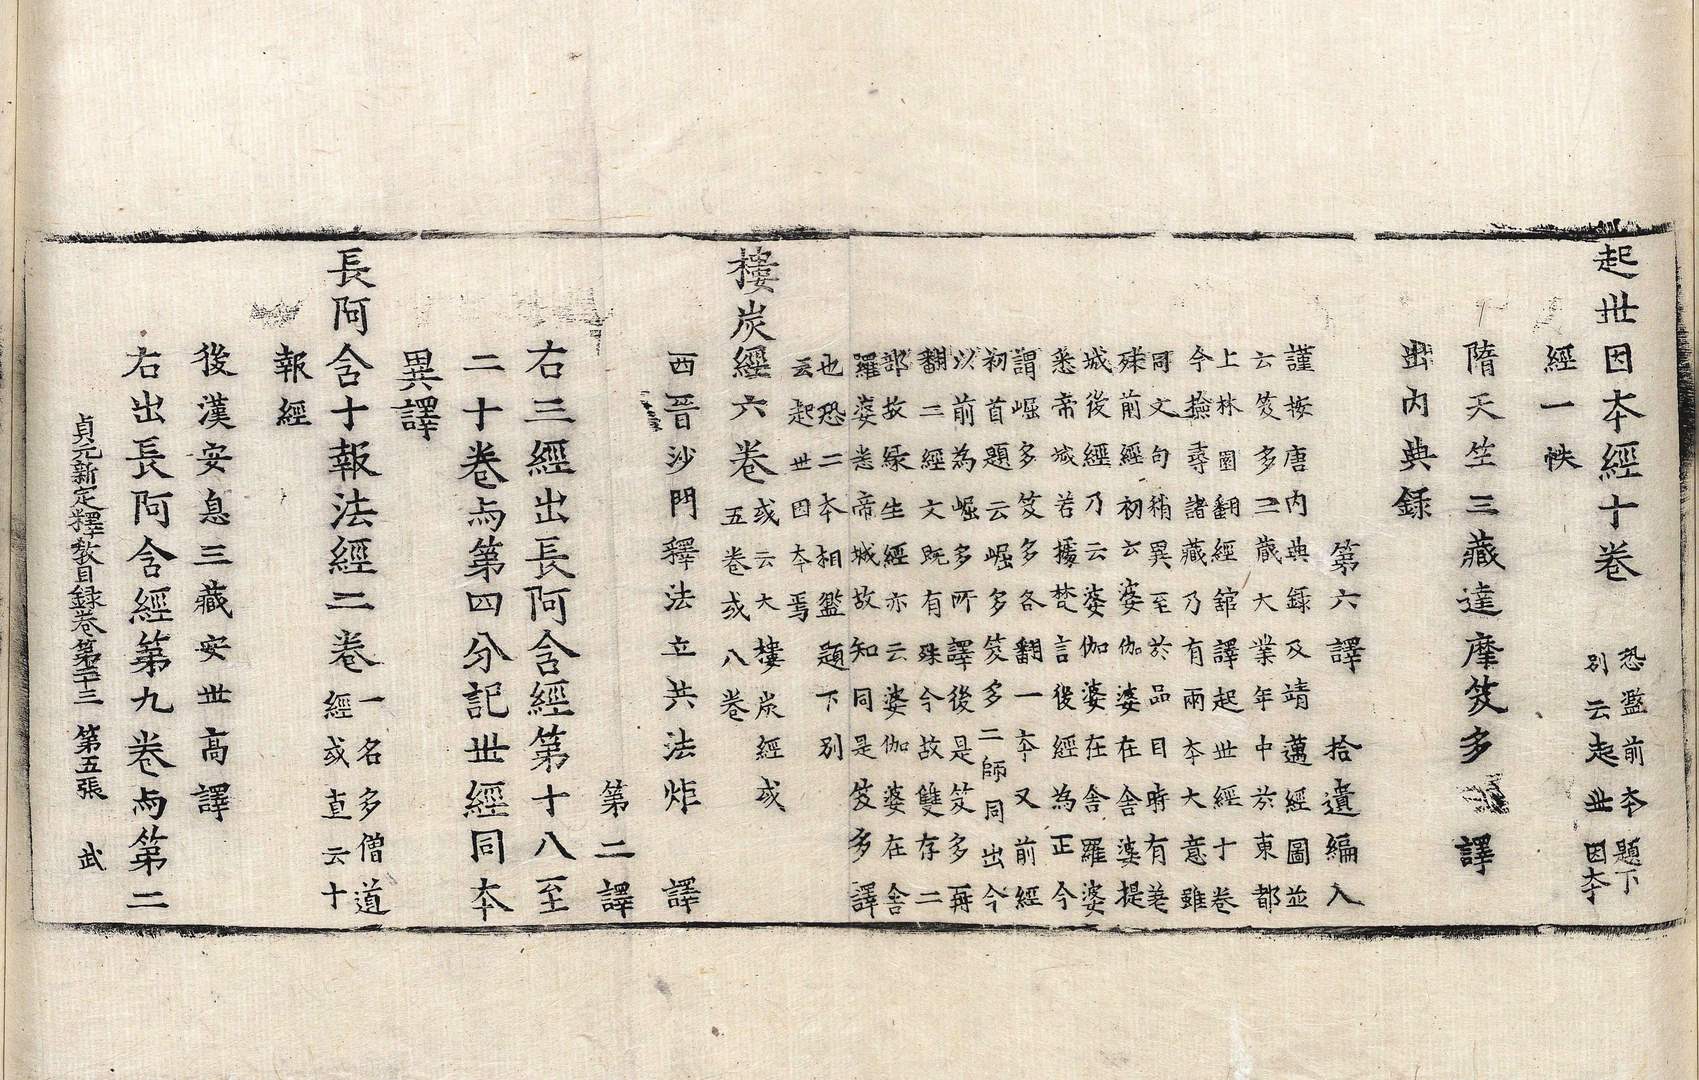 起世因本經十卷 恐濫前本題下
別云起世因本
經一帙
隋天竺三藏達摩笈多譯
出內典錄
第六譯 拾遺編入
謹按唐內典錄及靖邁經圖並
云笈多三藏大業年中於東都
上林園翻經館譯起世經十卷
今撿尋諸藏乃有兩本大意雖
同文句稍異至於品目時有差
殊前經初云婆伽婆在舍婆提
城後經乃云婆伽婆在舍羅婆
悉帝城若據梵言後經為正今
謂崛多笈多各翻一本又前經
初首題云崛多笈多二師同出今
以前為崛多所譯後是笈多再
翻二經文既有殊今故雙存二
部故緣生經亦云婆伽婆在舍
羅婆悉帝城故知同是笈多譯
也恐二本相濫題下別
云起世因本焉
樓炭經六卷 或云大樓炭經或
五卷或八卷
西晉沙門釋法立共法炬 譯
第二譯
右三經出長阿含經第十八至
二十卷与第四分記世經同本
異譯
長阿含十報法經二卷 一名多僧道
經或直云十
報經
後漢安息三藏安世高譯
右出長阿含經第九卷与第二
貞元新定釋教目錄卷第二十三 第五張 武